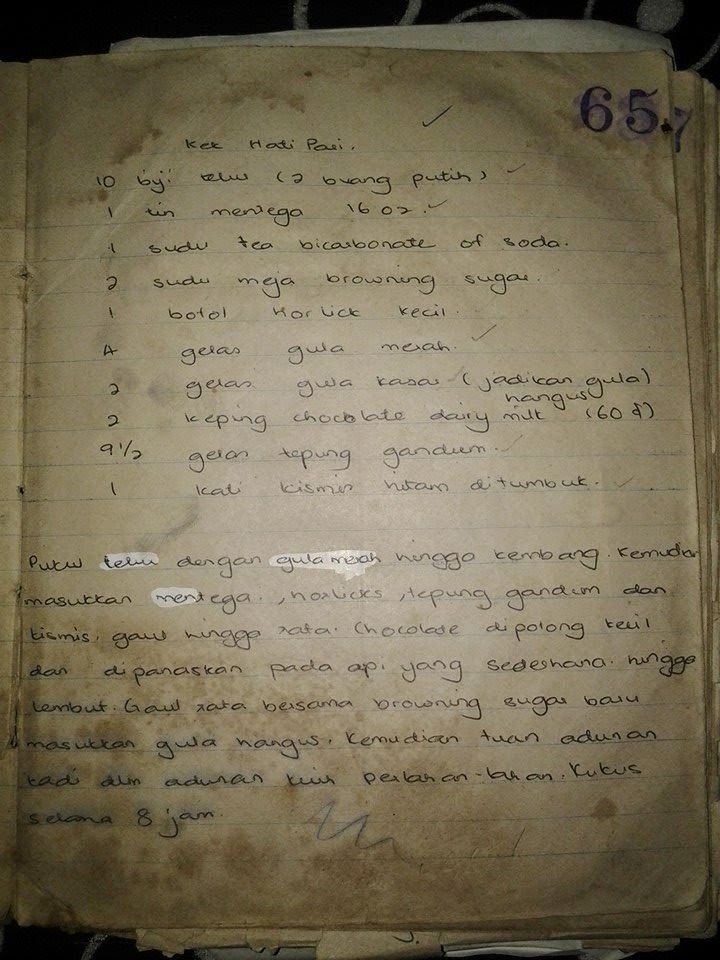 65.7
Kek Hati Pari.
10 biji telur (2 buang putih)
1 tin mentega 16 oz.
1 sudu tea bicarbonate of soda.
2 sudu meja browning sugar.
1 botol Horlick kecil.
4 gelas gula merah.
2 gelas gula kasar (jadikan gula
hangus)
2 keping chocolate dairy milk (60 ¢)
9 1/2 gelas tepung gandum.
1 kati kismis hitam ditumbuk.
Pukul telur dengan gula merah hingga kembang. Kemudian
masukkan mentega, horlicks, tepung gandum dan
kismis. gaul hingga rata. Chocolate dipotong kecil
dan dipanaskan pada api yang sederhana hingga
lembut. Gaul rata bersama browning sugar baru
masukkan gula hangus. Kemudian tuan adunan
tadi dlm adunan kuih perlahan-lahan. Kukus
selama 8 jam.